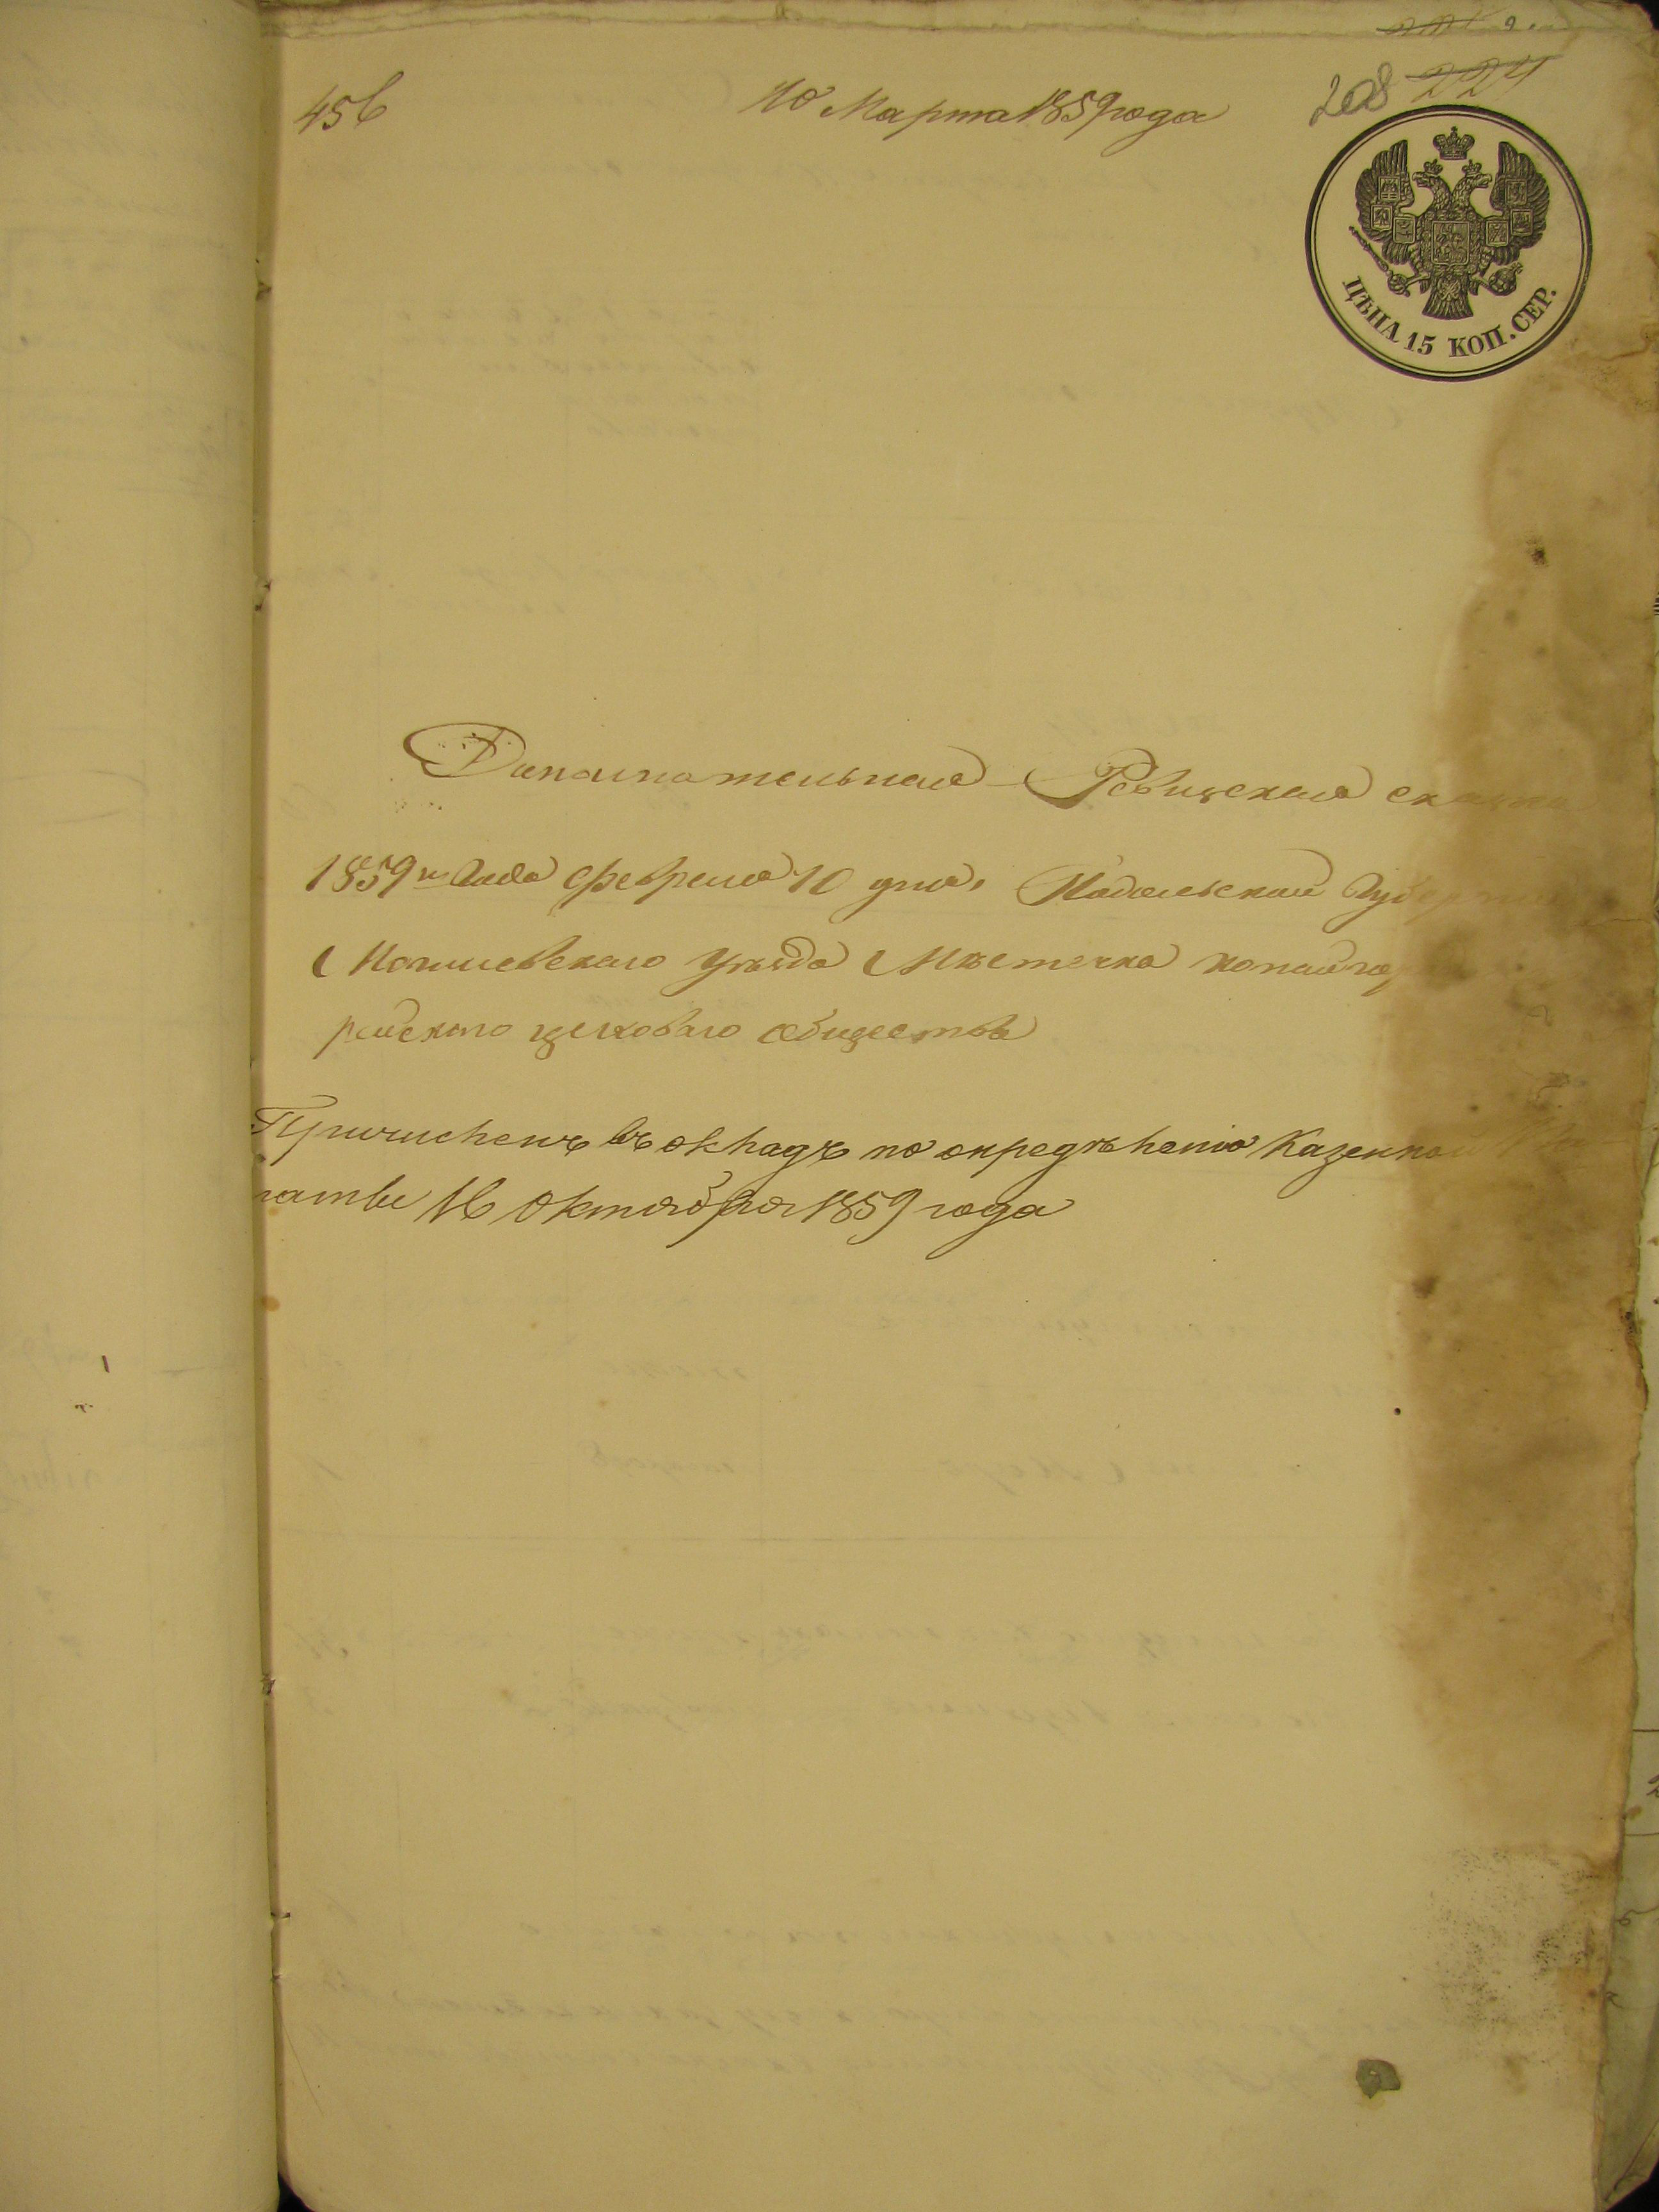 456
10 Марта 1859 года
208 224
ЦѢНА 15 КОП. СЕР.
Дополнательная Ревизская сказка
1859го Года февраля 10 дня. Подольской Губернии
Могилевского уѣзда Мѣстечка копайго
родского цеховаго общества
Причисленъ въ окладъ по опредѣленію Казенной Па
латы 16 Октября 1859 года